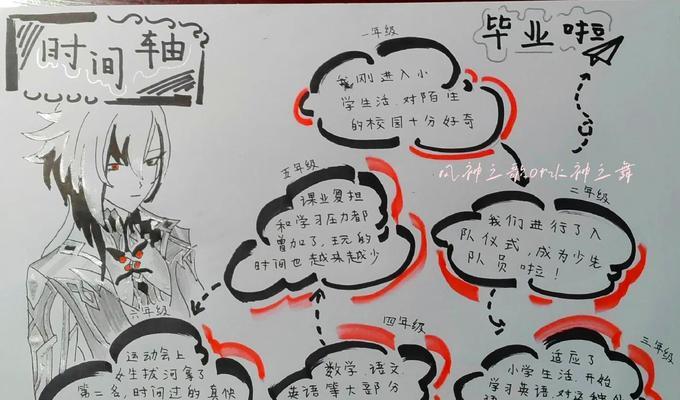 时间轴
毕业啦
一年级
我刚进入小
学生活,对陌生
的校园十分好奇
风神之歌or水神之舞
二年级
我们进行了入
队仪式,成为少先
队员啦!
三年级
适应了
小学生活,开始
学习英语,对这种
四年级
数学、语文
英语等大部分
五年级
课业复担
和学习压力都
曾加了,玩的
时间也越来越少
六年级
运动会上
女生拔河拿了
第二名,时间过的真快